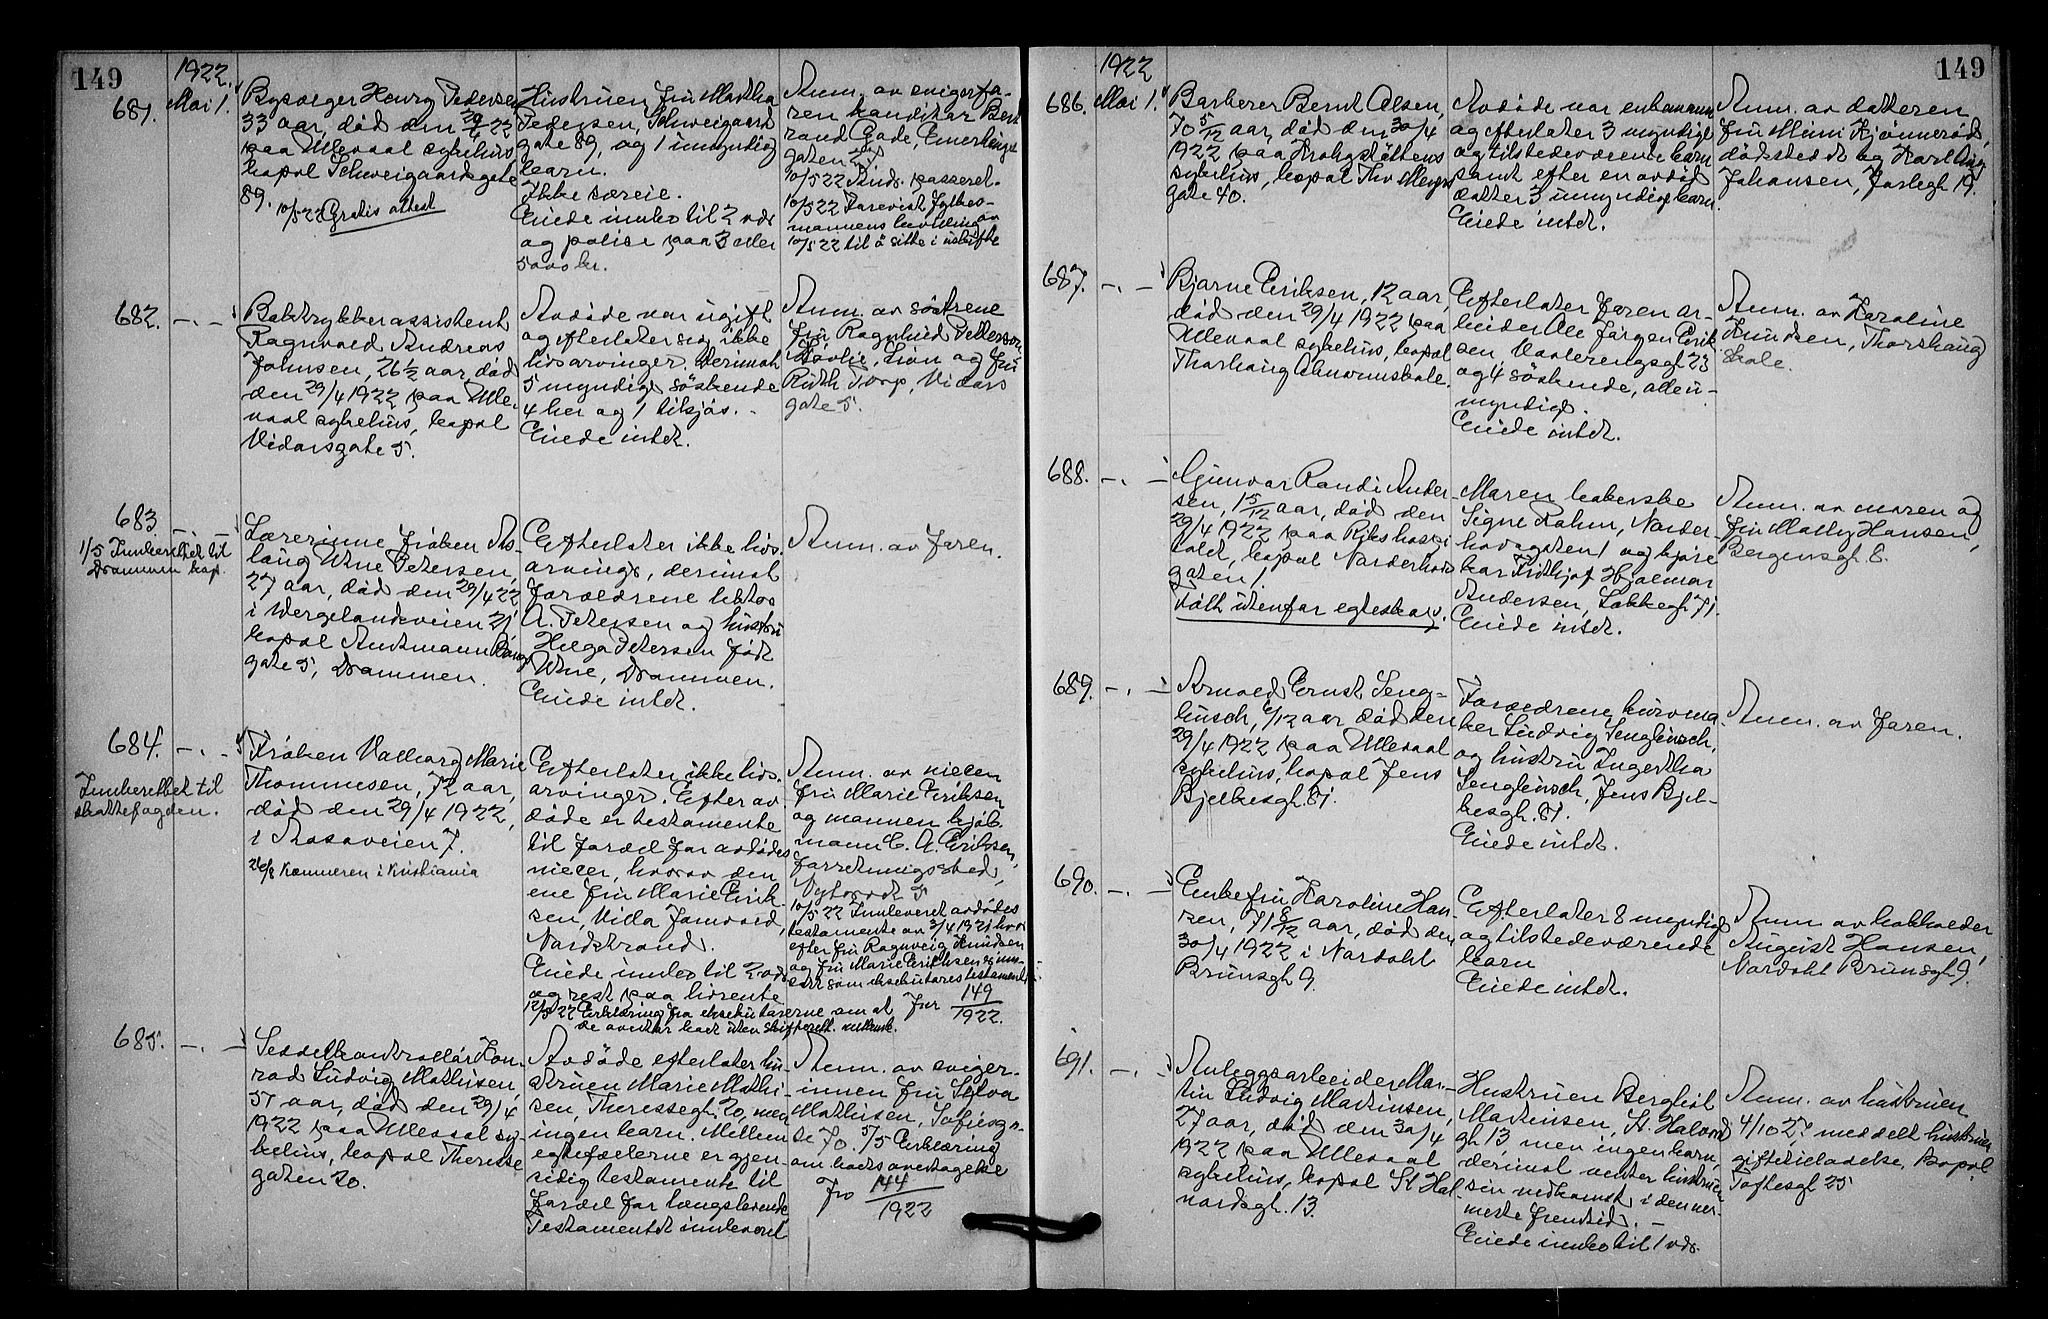 149
1922.
681. Mai 1.
Bysælger Henry Pedersen
33 aar, død den 29/4 22
paa Ullevaal sykehus,
bopæl Schweigaardsgate
89. 10/5 22 Gratis attest
Hustruen, fru Martha
Pedersen, Schweigaard
gate 89, og 1 umyndig
barn.
Ikke særeie.
Eiede innbo til 2 vds
og polise paa 3 eller
5000 kr.
Anm. av svigerfa-
ren konditor Bert
rand Gade,
gaten
10/5 22 passeret.
10/5 22 Forevist Fylkes-
mannens bevilling av
10/5 22 til å sitte i uskifte
682. — . —
Boktrykkerassistent
Ragnvald Andreas
Johnsen, 26 1/2 aar, død
den 29/4 1922 paa Ulle-
vaal sykehus, bopæl
Vidarsgate 5.
Avdøde var ugift
og efterlater sig ikke
livsarvinger. Derimot
5 myndige søskende
4 her og 1 tilsjøs. -
Eiede intet.
Anm. av søstrene
fru Ragnhild Petterson
og fru
Ruth Torp, Vidars
gate 5.
683 —
1/5 Innberettet til
Drammen
Lærerinne frøken As-
laug Wine Petersen,
27 aar, død den 29/4 22
i Wergelandsveien 21
bopæl Amtmann Bangs
gate 5, Drammen.
Efterlater ikke livs-
arvinge, derimot
forældrene lektor
A. Petersen og hustru
Helga Petersen født
Wine, Drammen.
Eiede intet.
Anm. av faren.
684. — . —
Innberettet til
skattefogden.
Frøken Valborg Marie
Thommesen, 72 aar,
død den 29/4 1922,
i Aasaveien 7.
26/8 Kæmneren i Kristiania
Efterlater ikke livs-
arvinger. Efter av
døde er testamente
til fordel for avdødes
niecer, hvorav den
ene fru Marie Erik-
sen, Villa Fannvold,
Nordstrand.
Eiede innbo til 2 vds
og rest paa livrente
12/5 22 Erklæring fra eksekutorerne om at
de overtar boet uten skifterett. medvirk.
Anm. av niecen
fru Marie Eriksen
og mannen kjøb-
mann C. A. Eriksen,
forretningssted,
Nytorvet 5
10/5 22 Innleveret avdødes
testamente av 3/4 1921 hvor
efter fru Ragnveig Knudsen
og fru Marie Eriksen er inn-
satt som eksekutores testamenti
Jnr 149/1922.
685. — . —
Seddelkontrollør Kon-
rad Ludvig Mathisen,
57 aar, død den 29/4
1922 paa Ullevaal sy-
kehus, bopæl Therese
gaten 20.
Avdøde efterlater hu-
struen Marie Mathi-
sen, Theresesgt. 20, men
ingen barn. Mellem
egtefællerne er gjen-
sidig testamente til
fordel for længstlevende
Testamentet innleveret
Anm. av sviger-
innen fru Selva
Mathisen, Sofiesga-
te 70. 5/5 Erklæring
om boets overtagelse
Jno 144/1922
149
1922
686. Mai 1.
Barberer Bernt Olsen,
70 5/12 aar, død den 30/4
1922 paa Krohgstøttens
sykehus, bopæl Thv. Meyers
gate 40.
Avdøde var enkemann
og efterlater 3 myndige
og tilstedeværende barn
samt efter en avdød
datter 3 umyndige barn.
Eiede intet.
Anm. av datteren
fru Mimi Kjønnerød,
dødsstedet og Karl
Johansen, Jarlegt. 19.
687. — . —
Bjarne Eriksen, 12 aar,
død den 29/4 1922 paa
Ullevaal sykehus, bopæl
Thorhaug Abnormskole.
Efterlater faren ar-
beider Ole Jørgen Erik
sen, Vaalerengsgt 23
og 4 søskende, alle u-
myndige.
Eiede intet.
Anm. av Karoline
Knudsen, Thorshaug
skole.
688. — . —
Gunvor Randi Ander-
sen, 1 5/12 aar, død den
29/4 1922 paa Rikshospi
talet, bopæl Norderhovs
gaten 1.
Født utenfor egteskap.
Moren kokerske
Signe Rahm, Norder-
hovsgaten 1 og kjøre
kar Fridtjof Hjalmar
Andersen, Løkkegt. 71.
Eiede intet.
Anm. av moren og
fru Molly Hansen,
Bergensgt. 8.
689. — . —
Arnold Ernst Seng-
busch, 6/12 aar død den
29/4 1922 paa Ullevaal
sykehus, bopæl Jens
Bjelkesgt. 81.
Forældrene, kurvma-
ker Ludvig Sengbusch,
og hustru Ingertha
Sengbusch, Jens Bjel-
kesgt. 81.
Eiede intet.
Anm. av faren.
690. — . —
Enkefru Karoline Han-
sen, 71 8/12 aar, død den
30/4 1922 i Nordahl
Brunsgt 9.
Efterlater 8 myndige
og tilstedeværende
barn
Eiede intet.
Anm. av bokholder
August Hansen,
Nordahl Brunsgt 9.
691. — . —
Anleggsarbeider Mar-
tin Ludvig Martinsen,
27 aar, død den 30/4
1922 paa Ullevaal
sykehus, bopæl St Hal-
vardsgt. 13.
Hustruen Bergliot
Martinsen, St. Halvard
gt 13, men ingen barn,
derimot venter hustruen
sin nedkomst i den nær-
meste fremtid. -
Eiede innbo til 1 vds.
Anm. av hustruen
4/10 27 meddelt hustruen
giftetilladelse, bopæl
Toftesgt 25